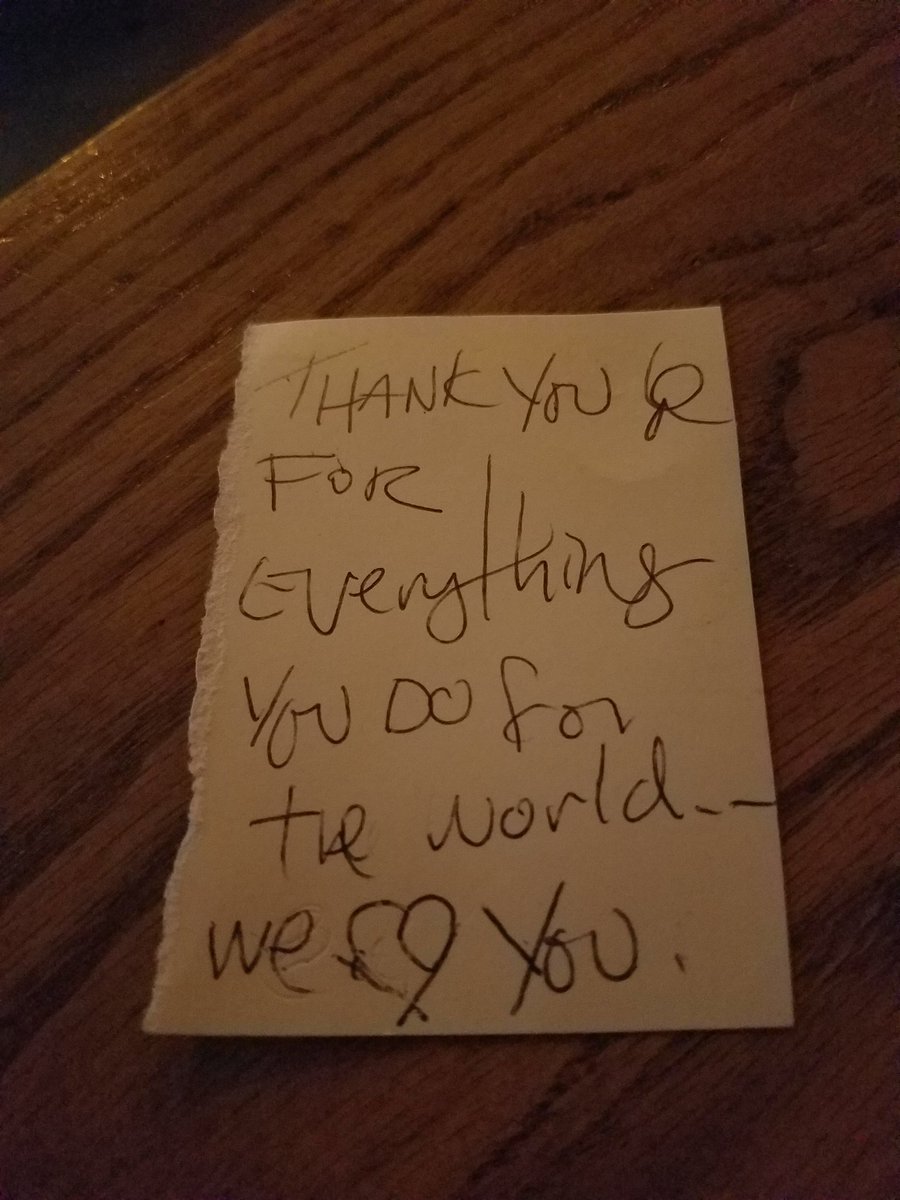 THANK YOU
FOR
Everything
YOU DO for
the world--
we ♡ YOU.